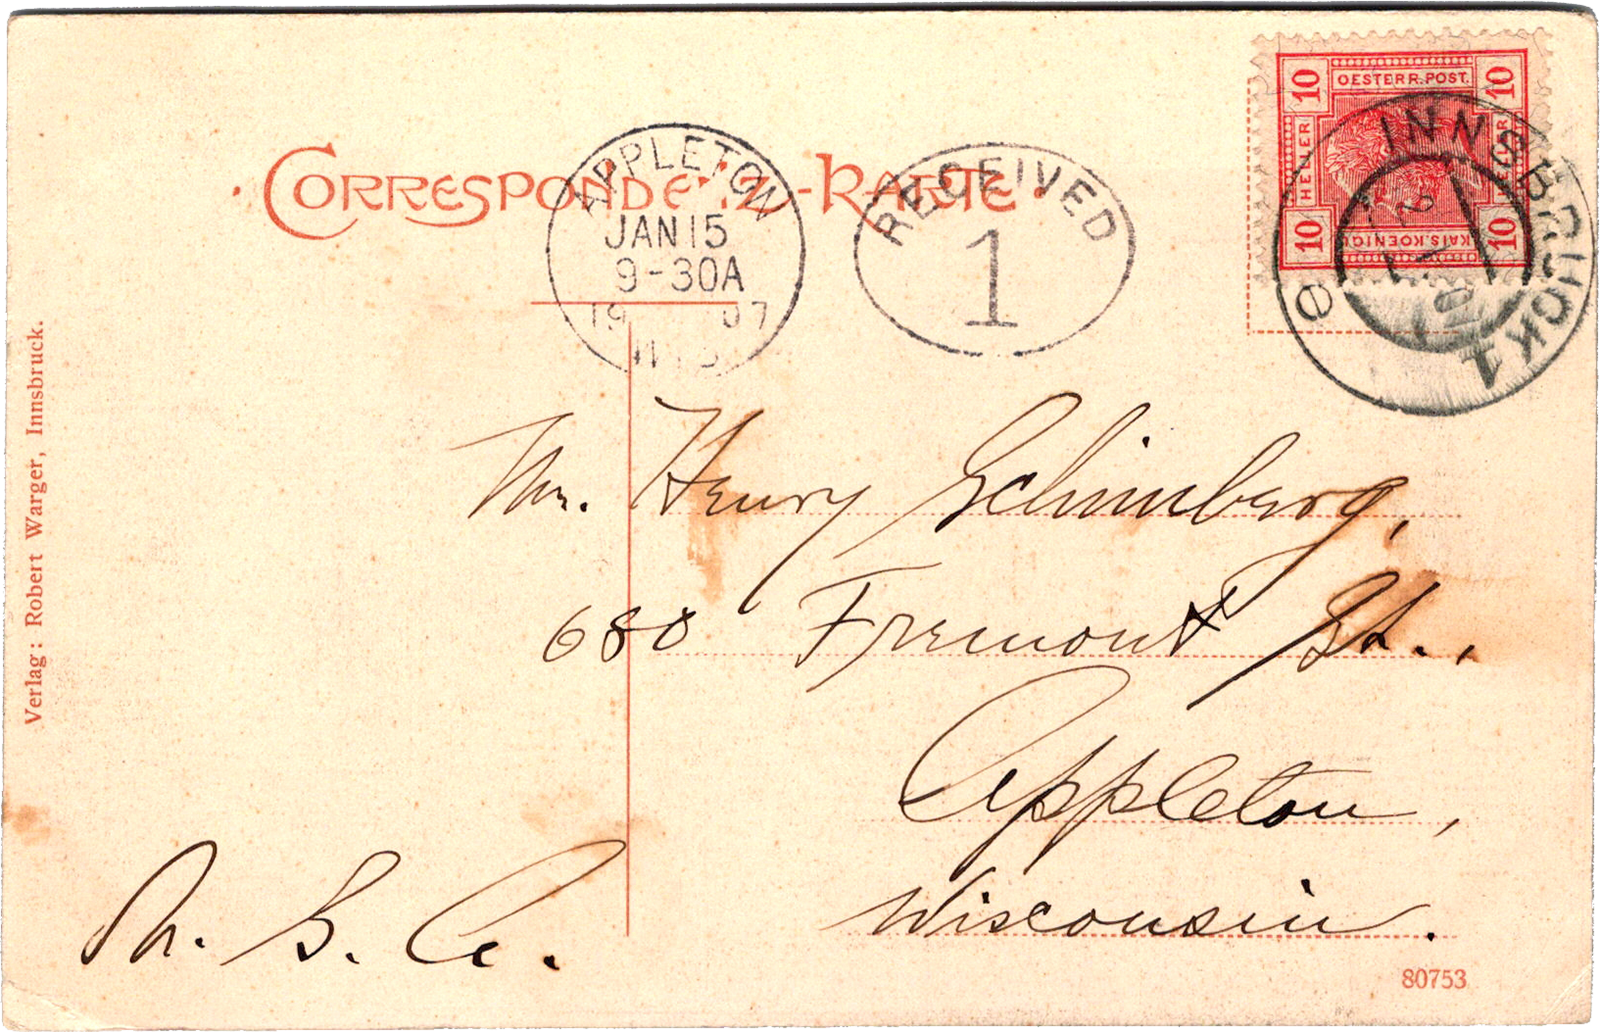 CORRESPONDENZ-KARTE
APPLETON
JAN 15
9-30A
1907
WIS
RECEIVED
1
OESTERR. POST.
10 10 10 10
HELLER HELLER
KAIS. KOENIGL
INNSBRUCK 1
e
Mr. Henry Schimberg,
680 Fremont St.,
Appleton,
Wisconsin.
80753
Verlag: Robert Warger, Innsbruck.